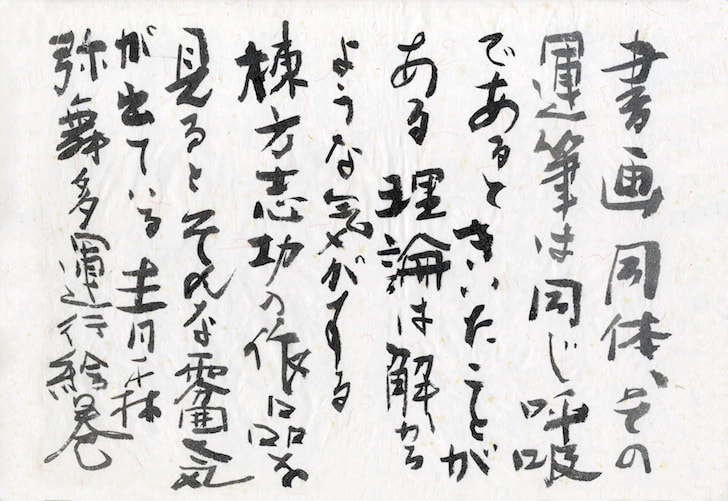 書画同体、その
運筆は同じ呼吸
であるときいたことが
ある理論は解る
ような気がする
棟方志功の作品を
見るとそんな雰囲気
が出ている青森
弥舞多運行絵巻